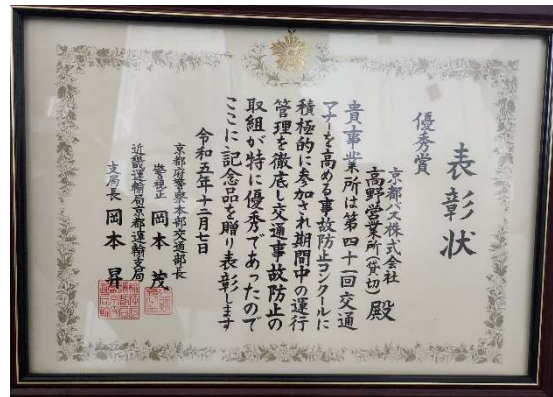 表彰状
優秀賞
京都バス株式会社
高野営業所(貸切) 殿
貴事業所は第四十一回交通
マナーを高める事故防止コンクールに
積極的に参加され期間中の運行
管理を徹底し交通事故防止の
取組が特に優秀であったので
ここに記念品を贈り表彰します
令和五年十二月七日
京都府警察本部交通部長
警視正 岡本 茂
近畿運輸局京都運輸支局
支局長 岡本 昇